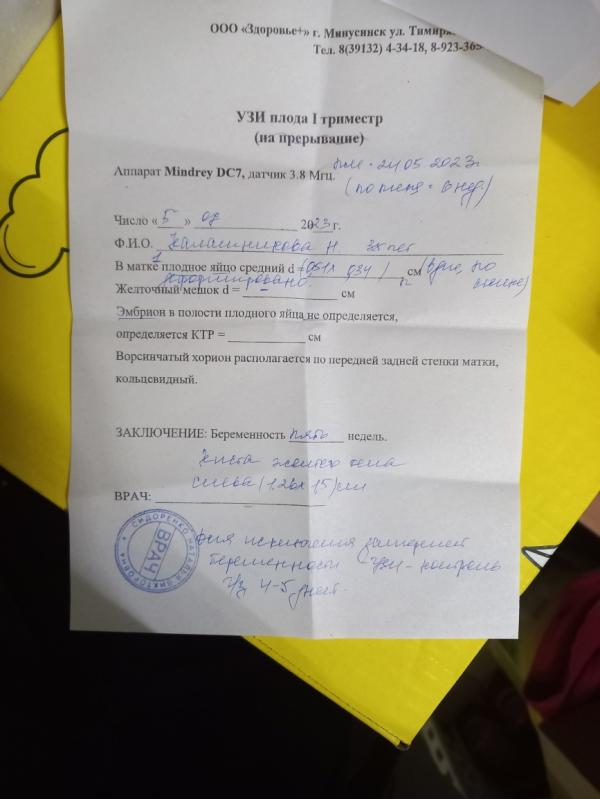 ООО «Здоровье+» г. Минусинск ул. Тимиря
Тел. 8(39132) 4-34-18, 8-923-365
УЗИ плода I триместр
(на прерывание)
Аппарат Mindrey DC7, датчик 3.8 Мгц. 24 05 2023г
(по менс = нед.)
Число « 5 » 07 2023г.
Ф.И.О. Калашникова Н.
В матке 1 плодное яйцо средний d = (0,51х 0,34) см
деформировано.
Желточный мешок d = - см
Эмбрион в полости плодного яйца не определяется,
определяется КТР = см
Ворсинчатый хорион располагается по передней задней стенки матки,
кольцевидный.
ЗАКЛЮЧЕНИЕ: Беременность пять недель.
Киста желтого тела
слева (1,26х 1,5) см
ВРАЧ:
СИДОРЕНКО НАТАЛЬЯ ВИКТОРОВНА
ВРАЧ
для исключения замершей
беременности УЗИ - контроль
ч/з 4-5 дней.